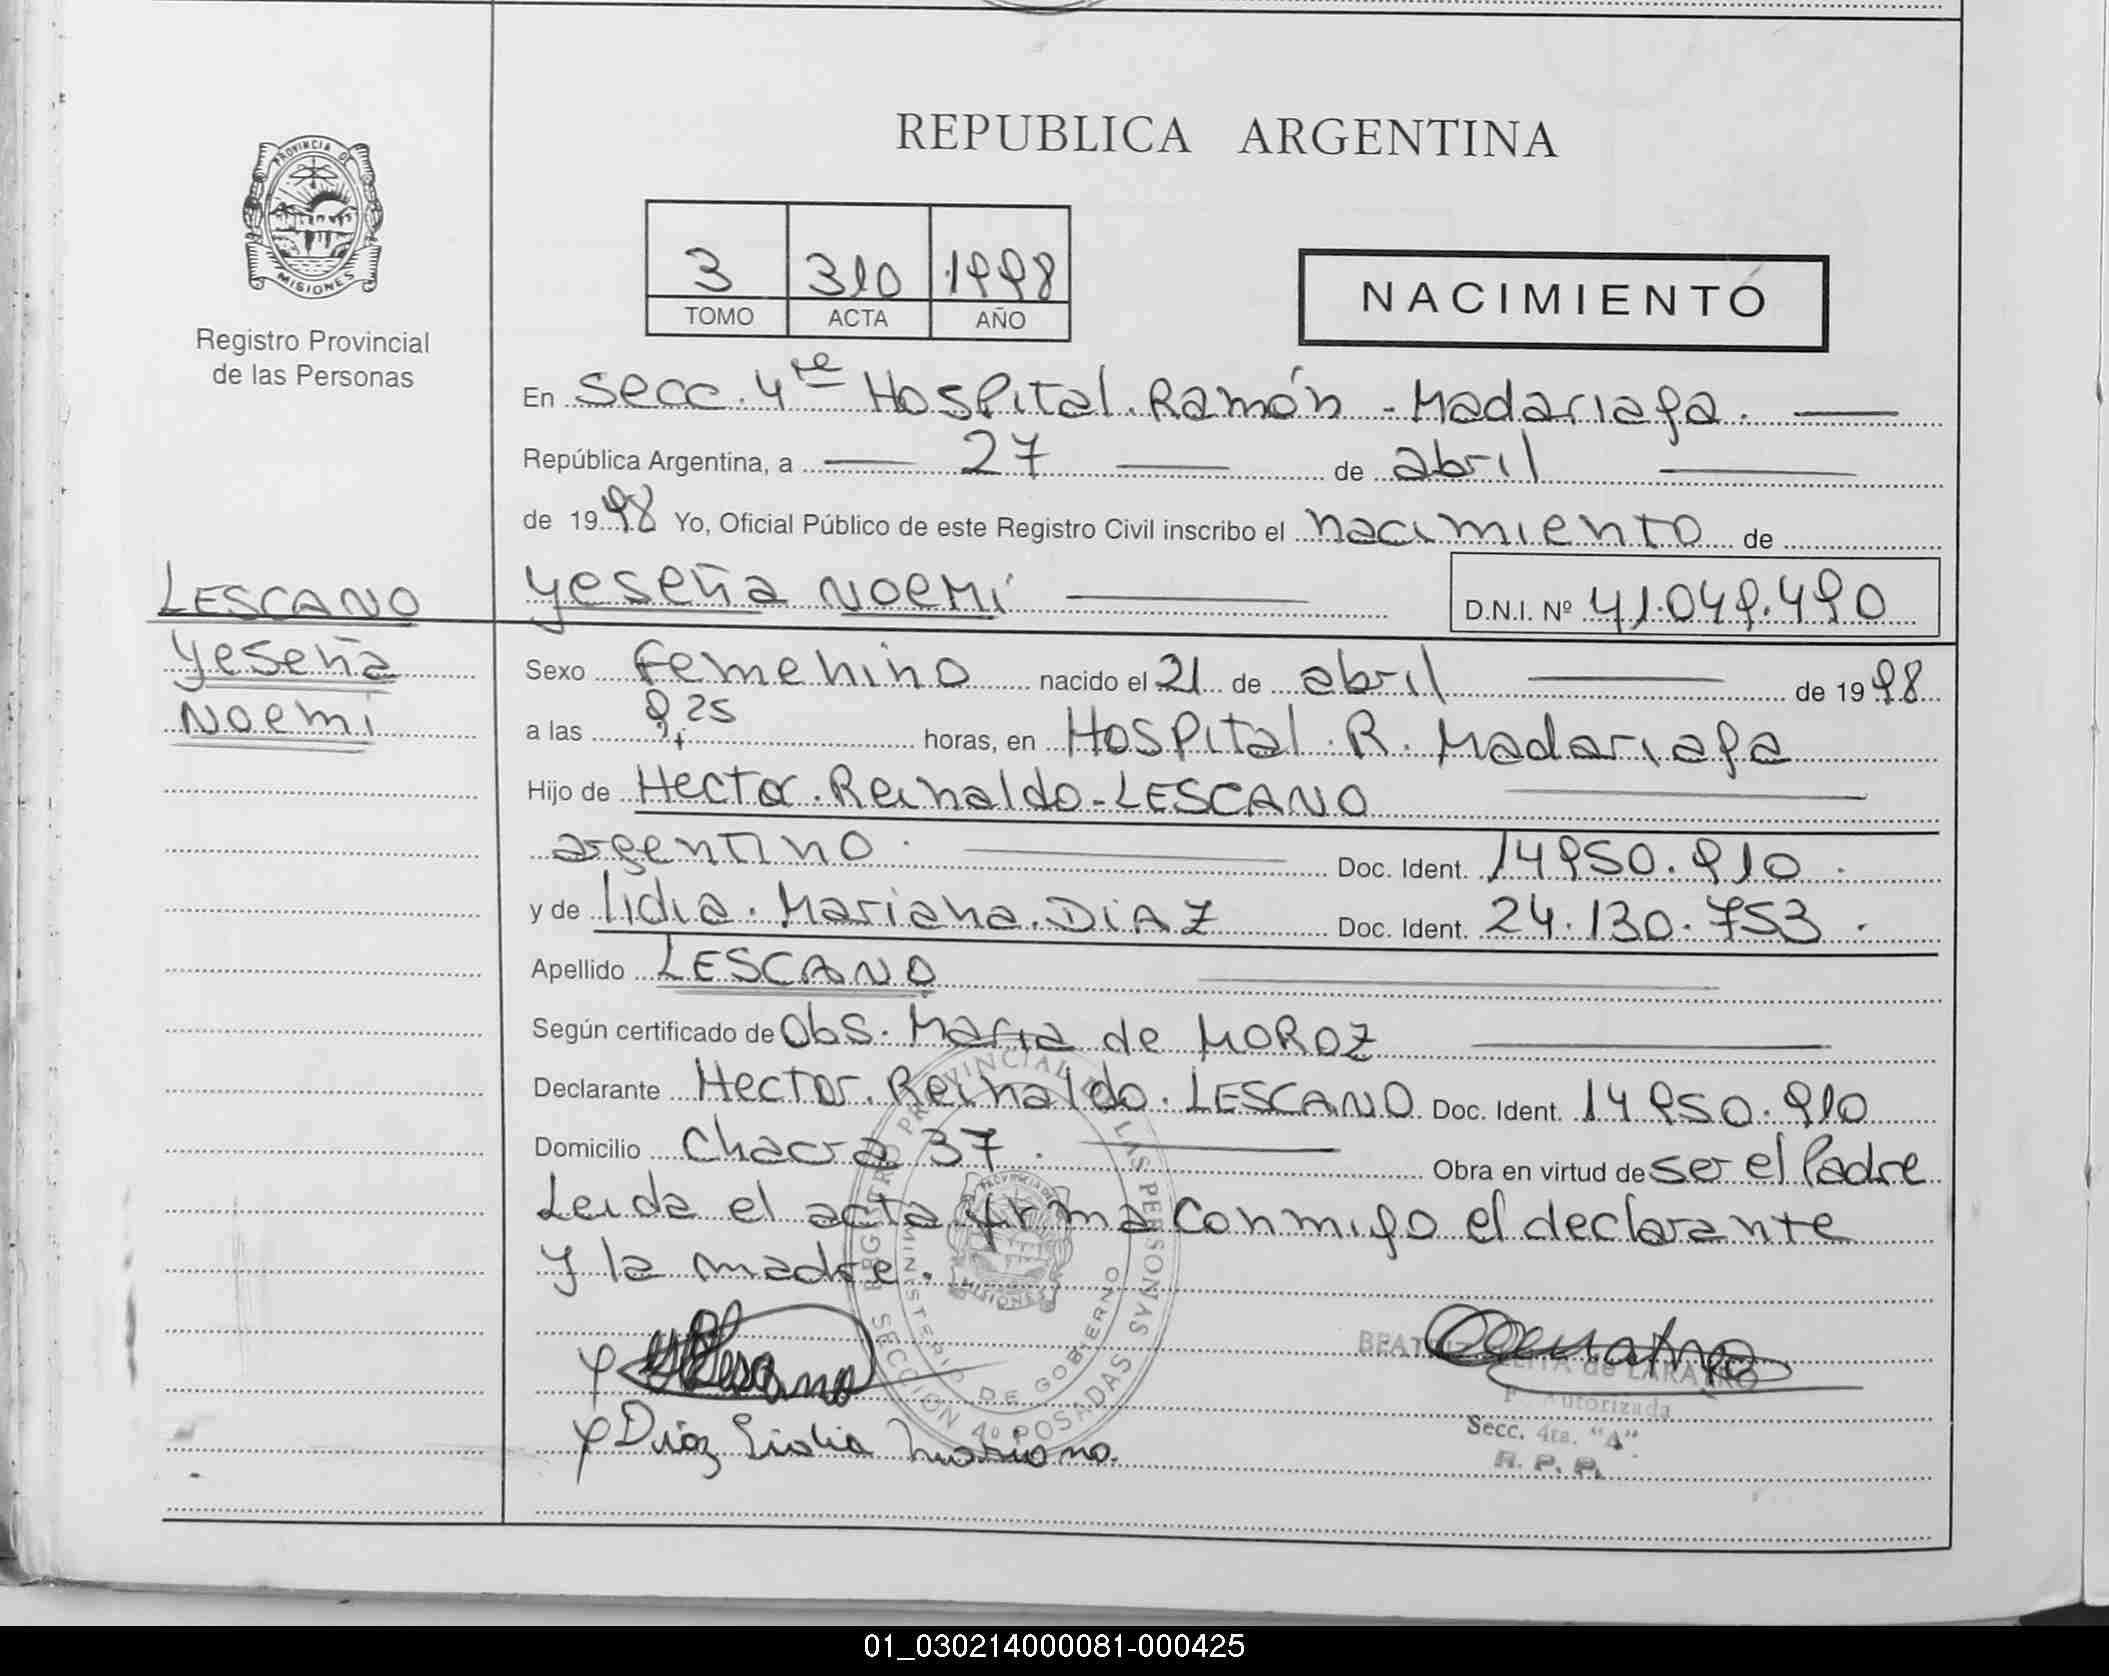 REPUBLICA ARGENTINA
PROVINCIA DE
MISIONES
Registro Provincial
de las Personas
3 310 1998
TOMO ACTA AÑO
NACIMIENTO
En Secc. 4ta Hospital. Ramón - Madariaga.
República Argentina, a 27 de abril
de 1998 Yo, Oficial Público de este Registro Civil inscribo el nacimiento de
LESCANO
Yeseña
Noemi
Yeseña Noemí D.N.I. Nº 41.049.490
Sexo femenino nacido el 21 de abril de 1998
a las 9,25 horas, en Hospital. R. Madariaga
Hijo de Hector. Reinaldo - LESCANO
argentino. Doc. Ident. 14950.910.
y de lidia. Mariana. DIAZ Doc. Ident. 24.130.753.
Apellido LESCANO
Según certificado de Obs. Maria de MOROZ
Declarante Hector. Reinaldo. LESCANO Doc. Ident. 14950.910
Domicilio Chacra 37. Obra en virtud de ser el Padre
Leida el acta firma conmigo el declarante
y la madre.
REGISTRO PROVINCIAL DE LAS PERSONAS
MINISTERIO DE GOBIERNO
SECCION 4º POSADAS
PROVINCIA DE
MISIONES
Lescano
Diaz Lidia Mariana.
BEATRIZ de
Autorizada
Secc. 4ta. "A"
R. P. P.
01_030214000081-000425